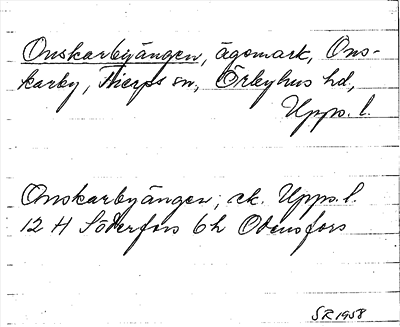 Onskarbyängen, ägomark, Ons-
karby, Tierps sn, Örbyhus hd,
Upps. l.
Onskarbyängen; ek. Upps. l.
12 H Söderfors 6h Odensfors
SR 1958